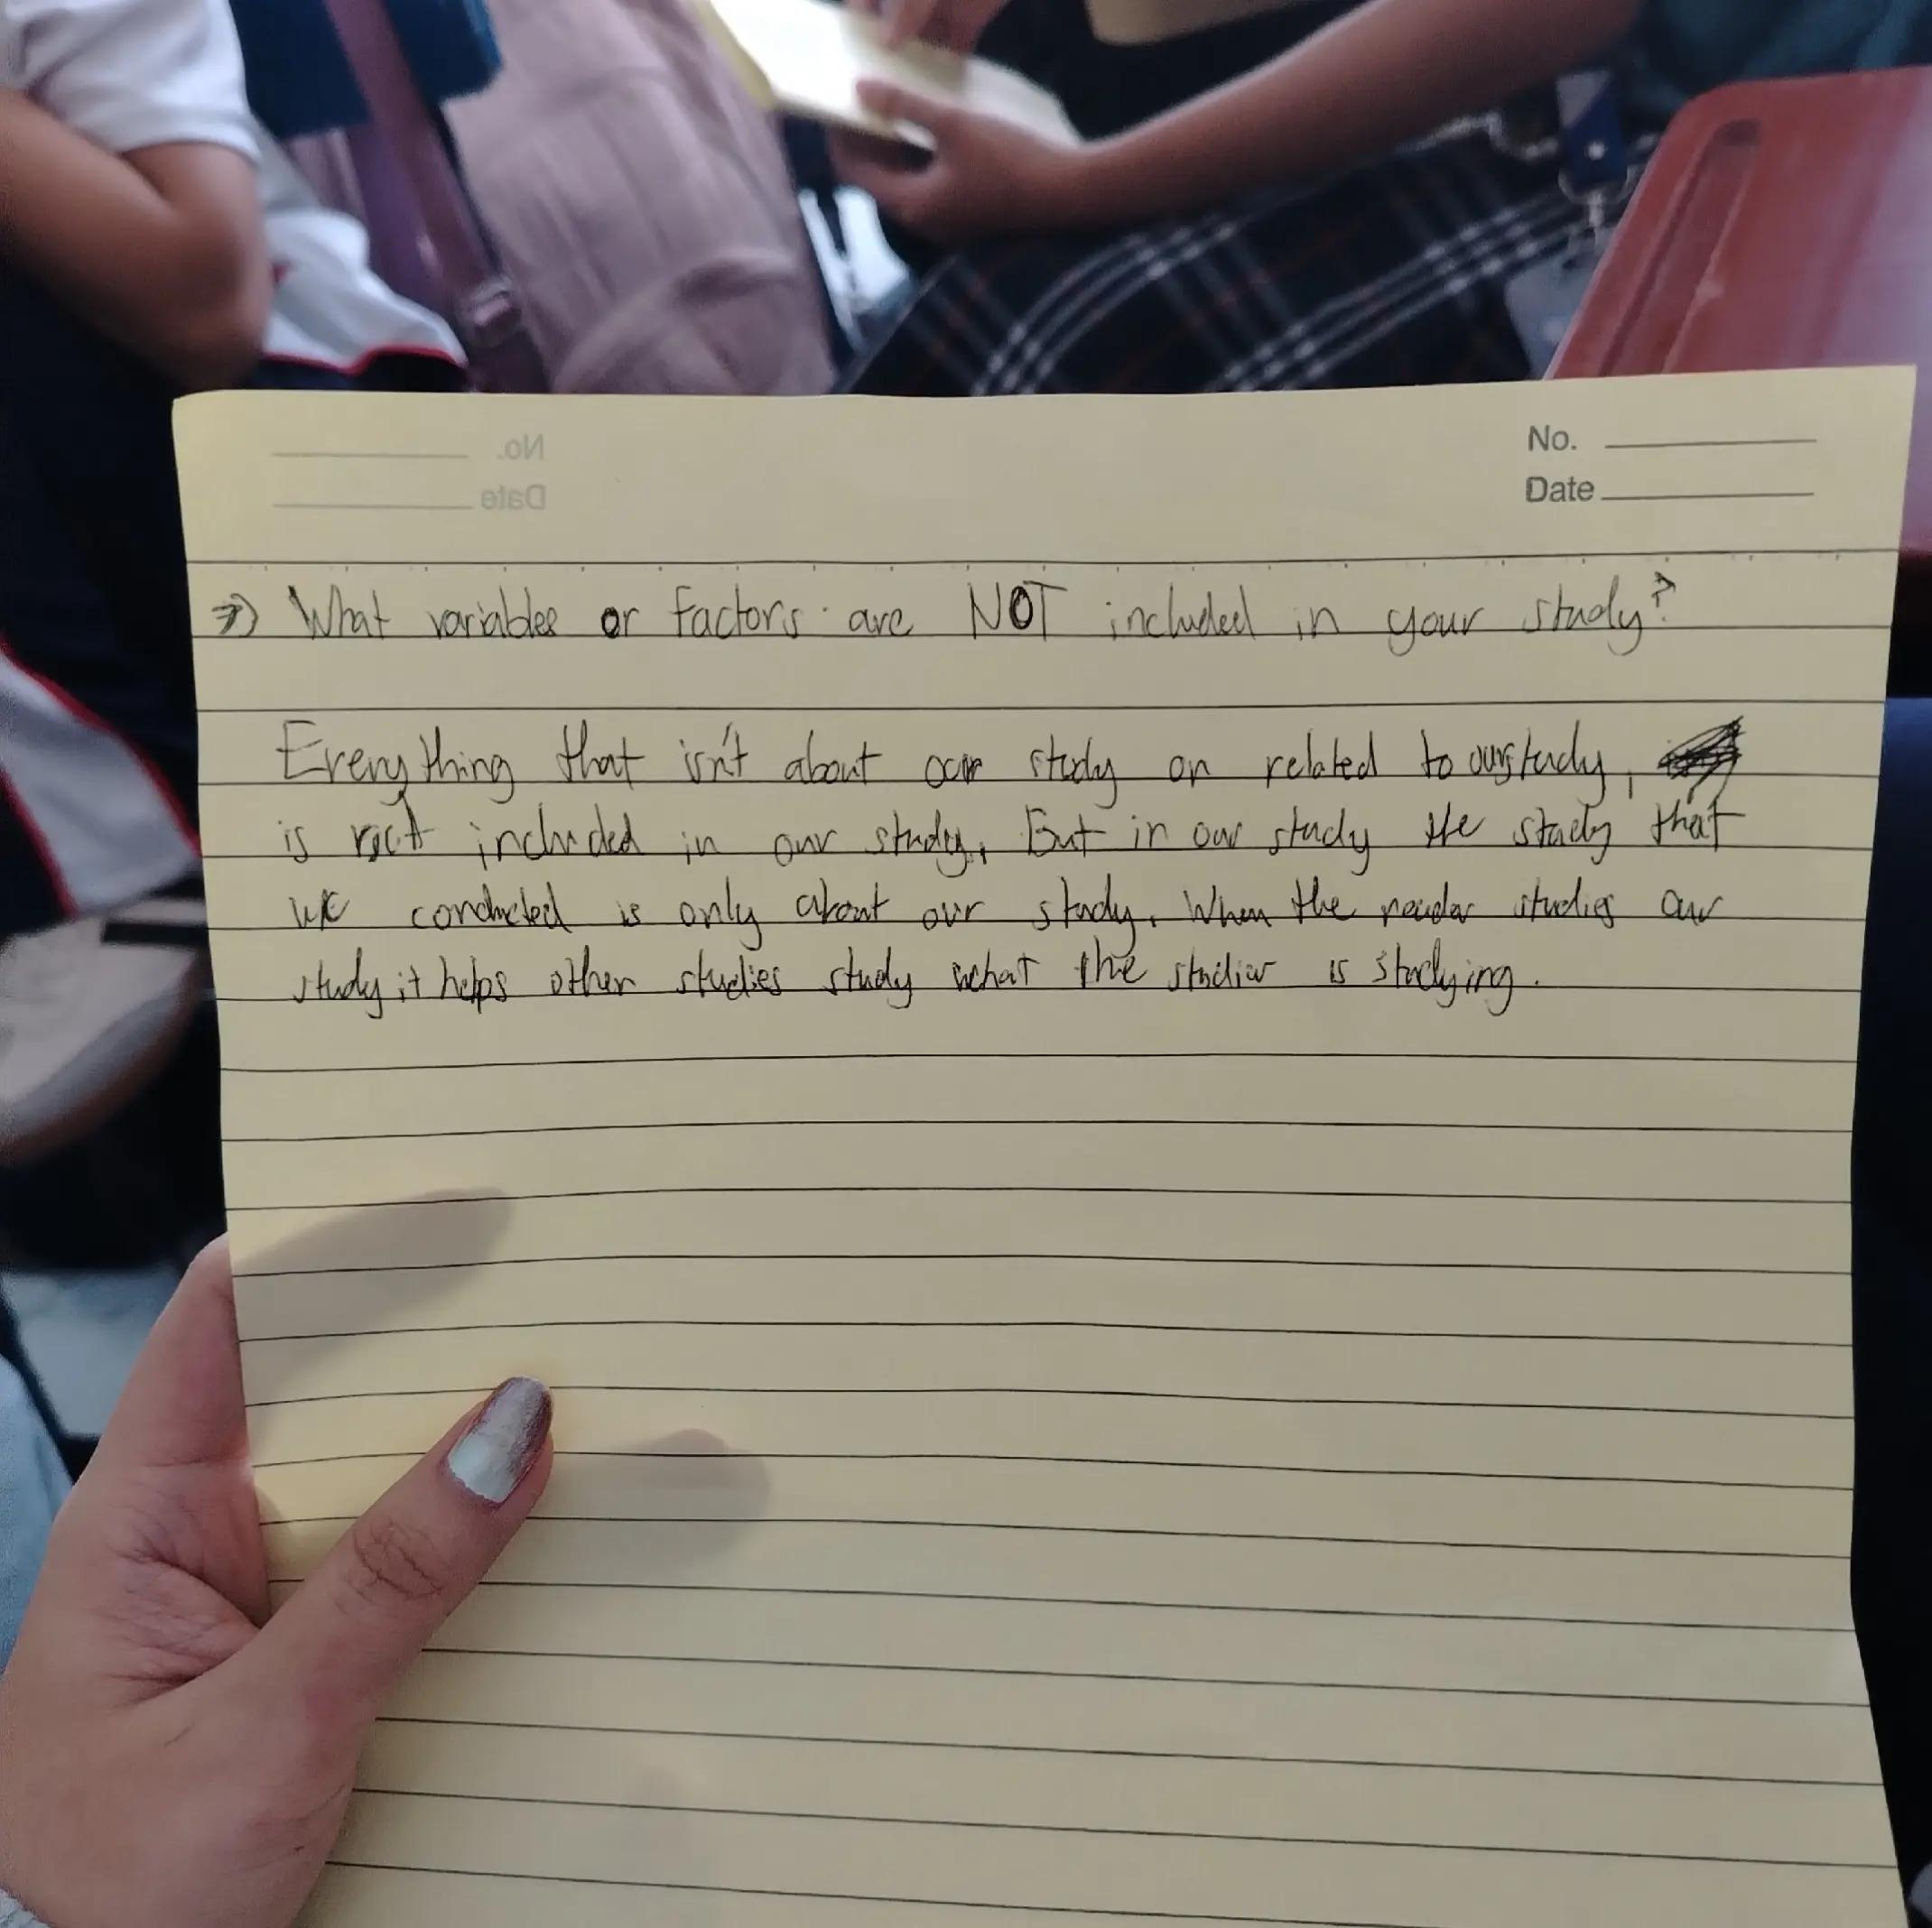 No.
Date
No.
Date
→) What variables or factors are NOT included in your study?
Everything that isn't about our study or related to our study,
is not included in our study. But in our study the study that
we conducted is only about our study. When the reader studies our
study it helps other studies study what the studier is studying.